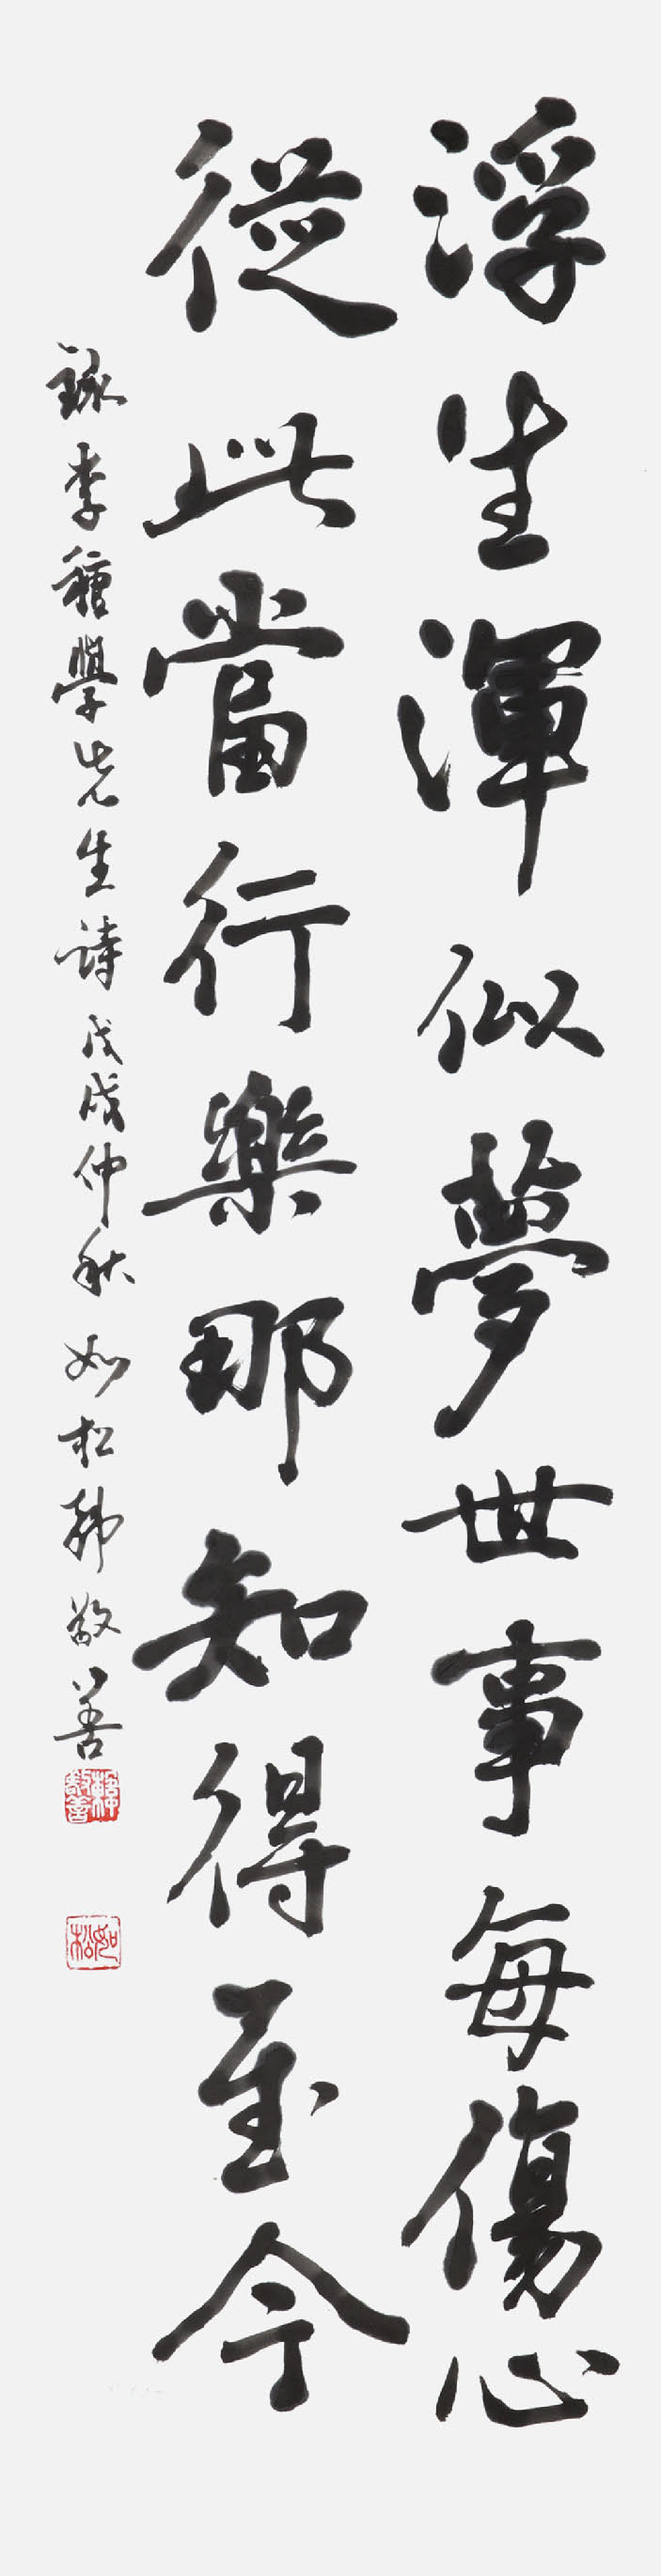 浮生渾似夢世事每傷心
從此當行樂那知得至今
錄李種學先生詩戊戌仲秋如松韓敬善
韓敬善
如松